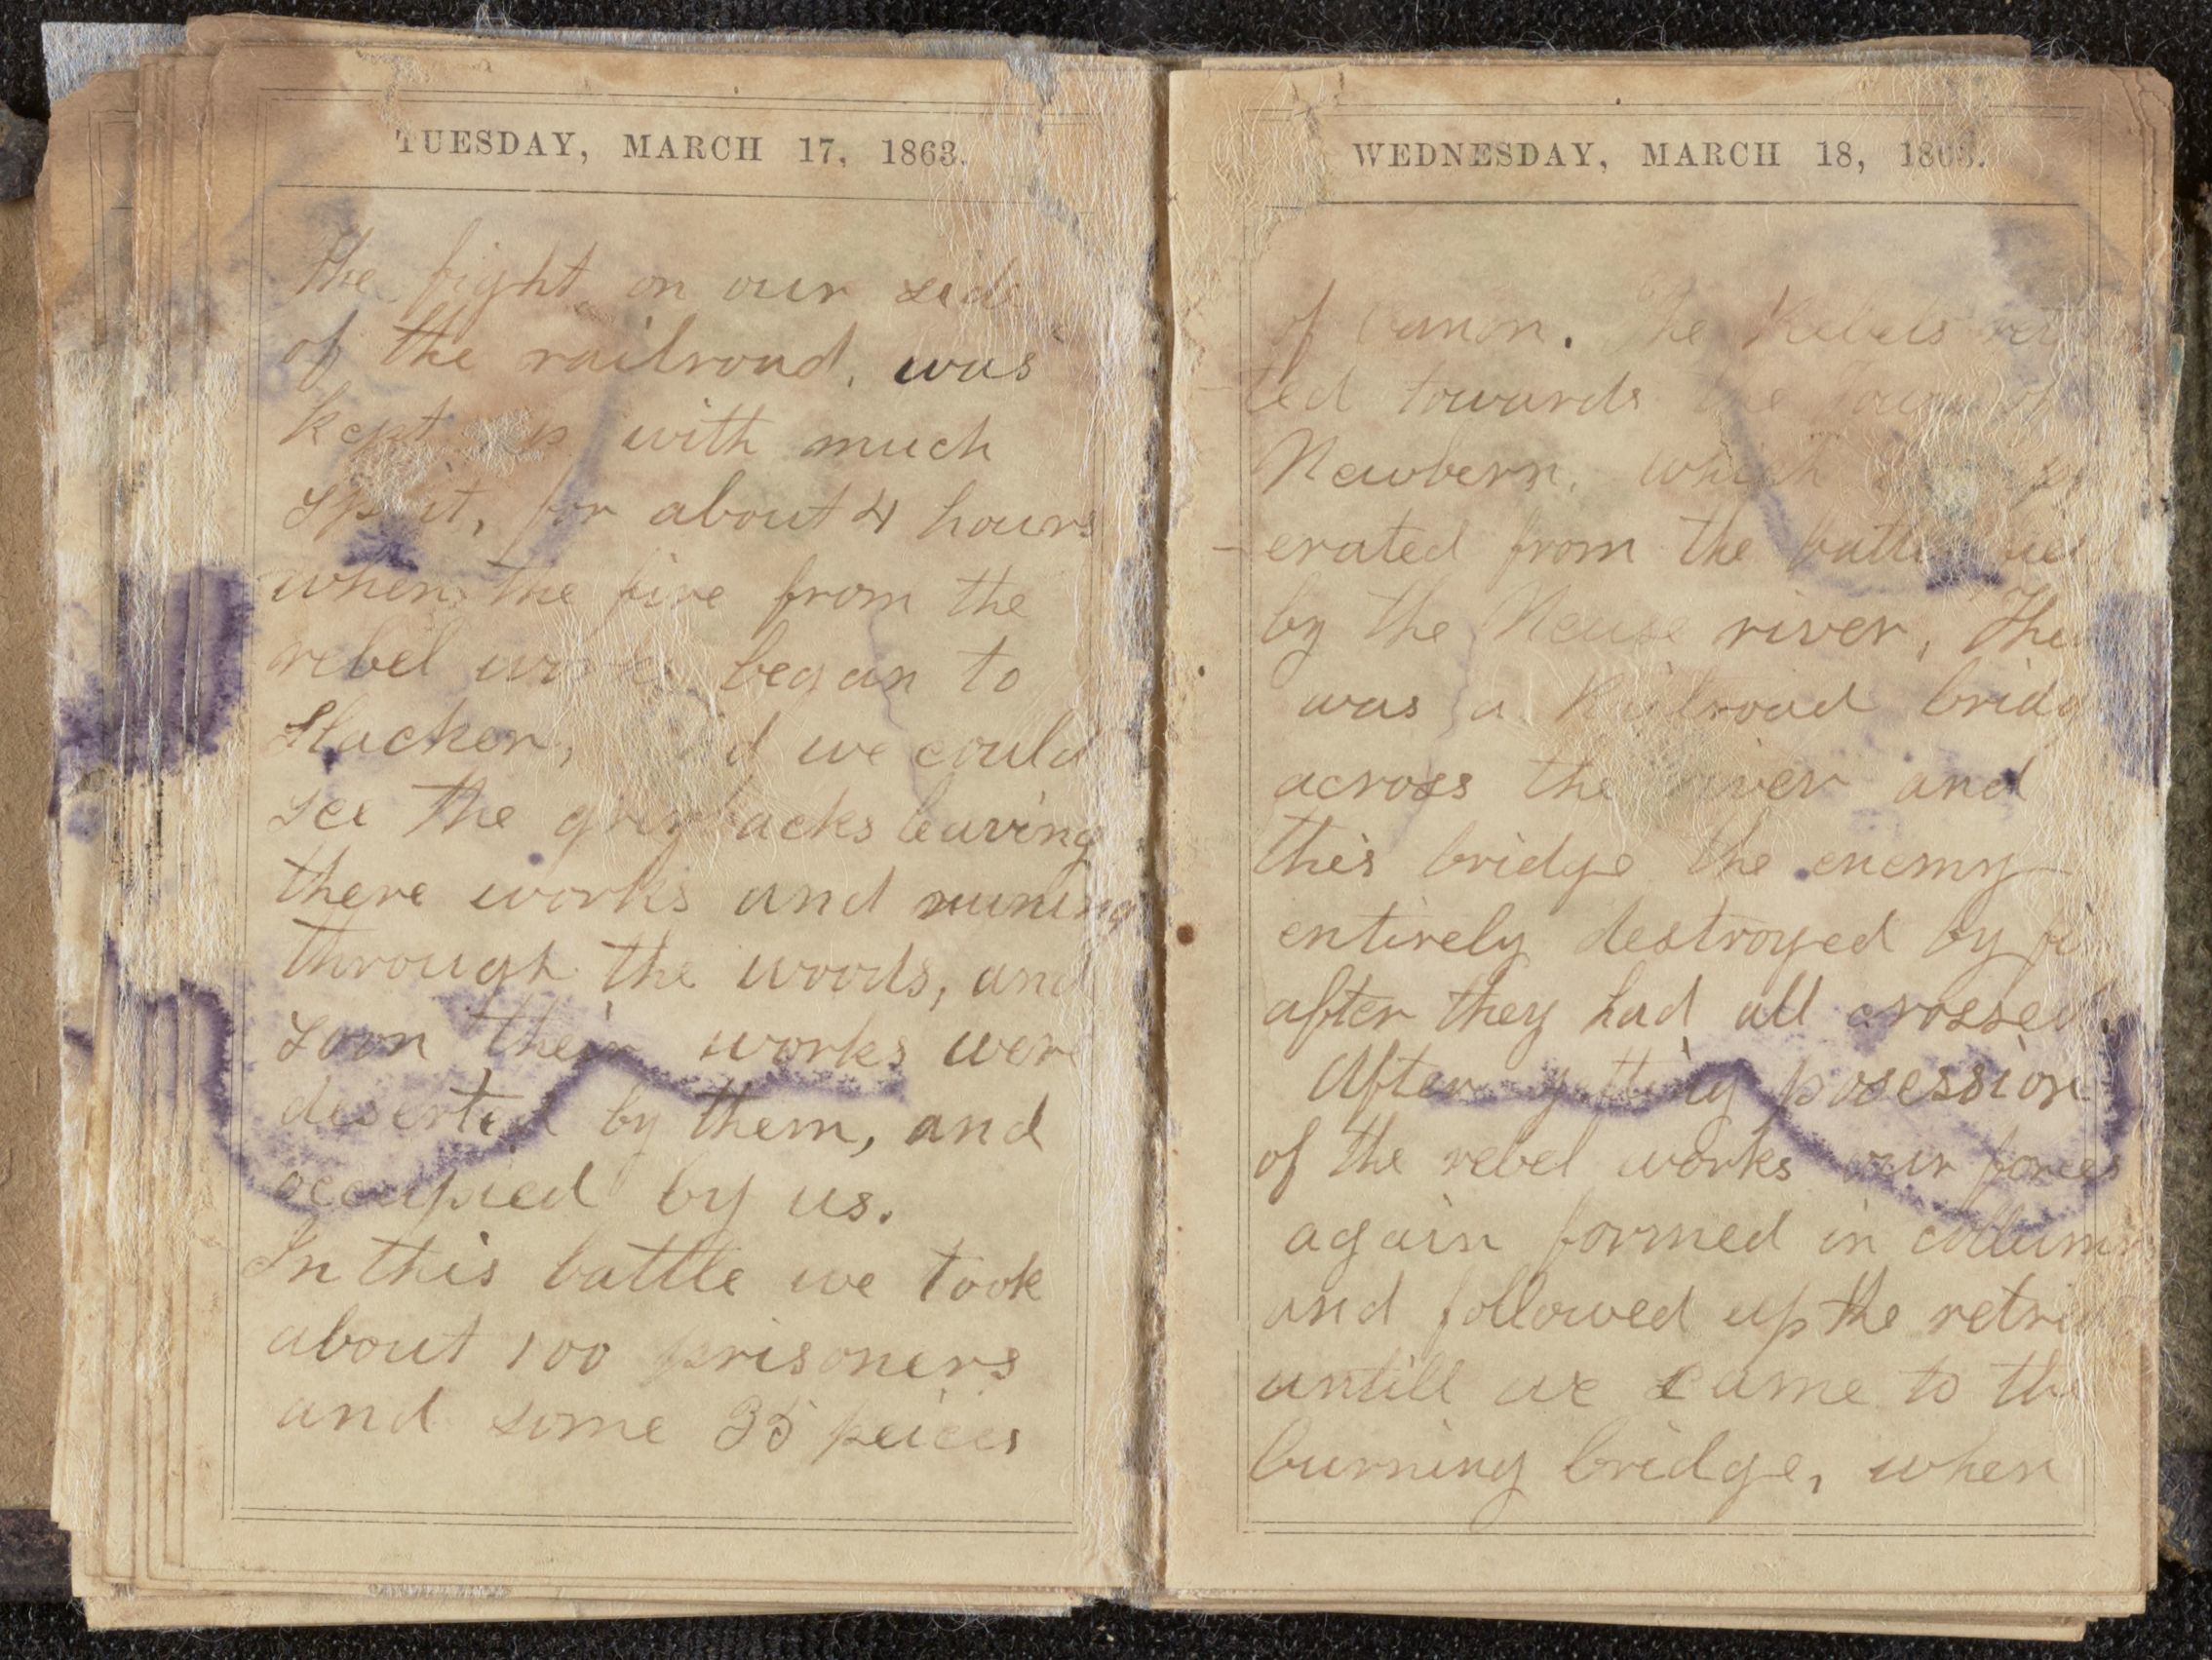 TUESDAY, MARCH 17, 1863.
The fight on our side
of the railroad, was
kept up with much
spirit, for about 4 hours
when the fire from the
rebel works began to
Slacken, and we could
see the greybacks leaving
there works and runing
through the woods, and
soon their works were
deserted by them, and
occupied by us.
In this battle we took
about 100 prisoners
and some 35 peices
WEDNESDAY, MARCH 18, 1863.
of canon. The Rebels
ted towards the Town of
Newbern, which
erated from the battle
by the Neuse river, The
was a Railroad bridg
across the river and
this bridge the enemy
entirely destroyed by
after they had all crossed
After posession
of the rebel works our forces
again formed in collumn
and followed up the
untill we came to the
burning bridge, when